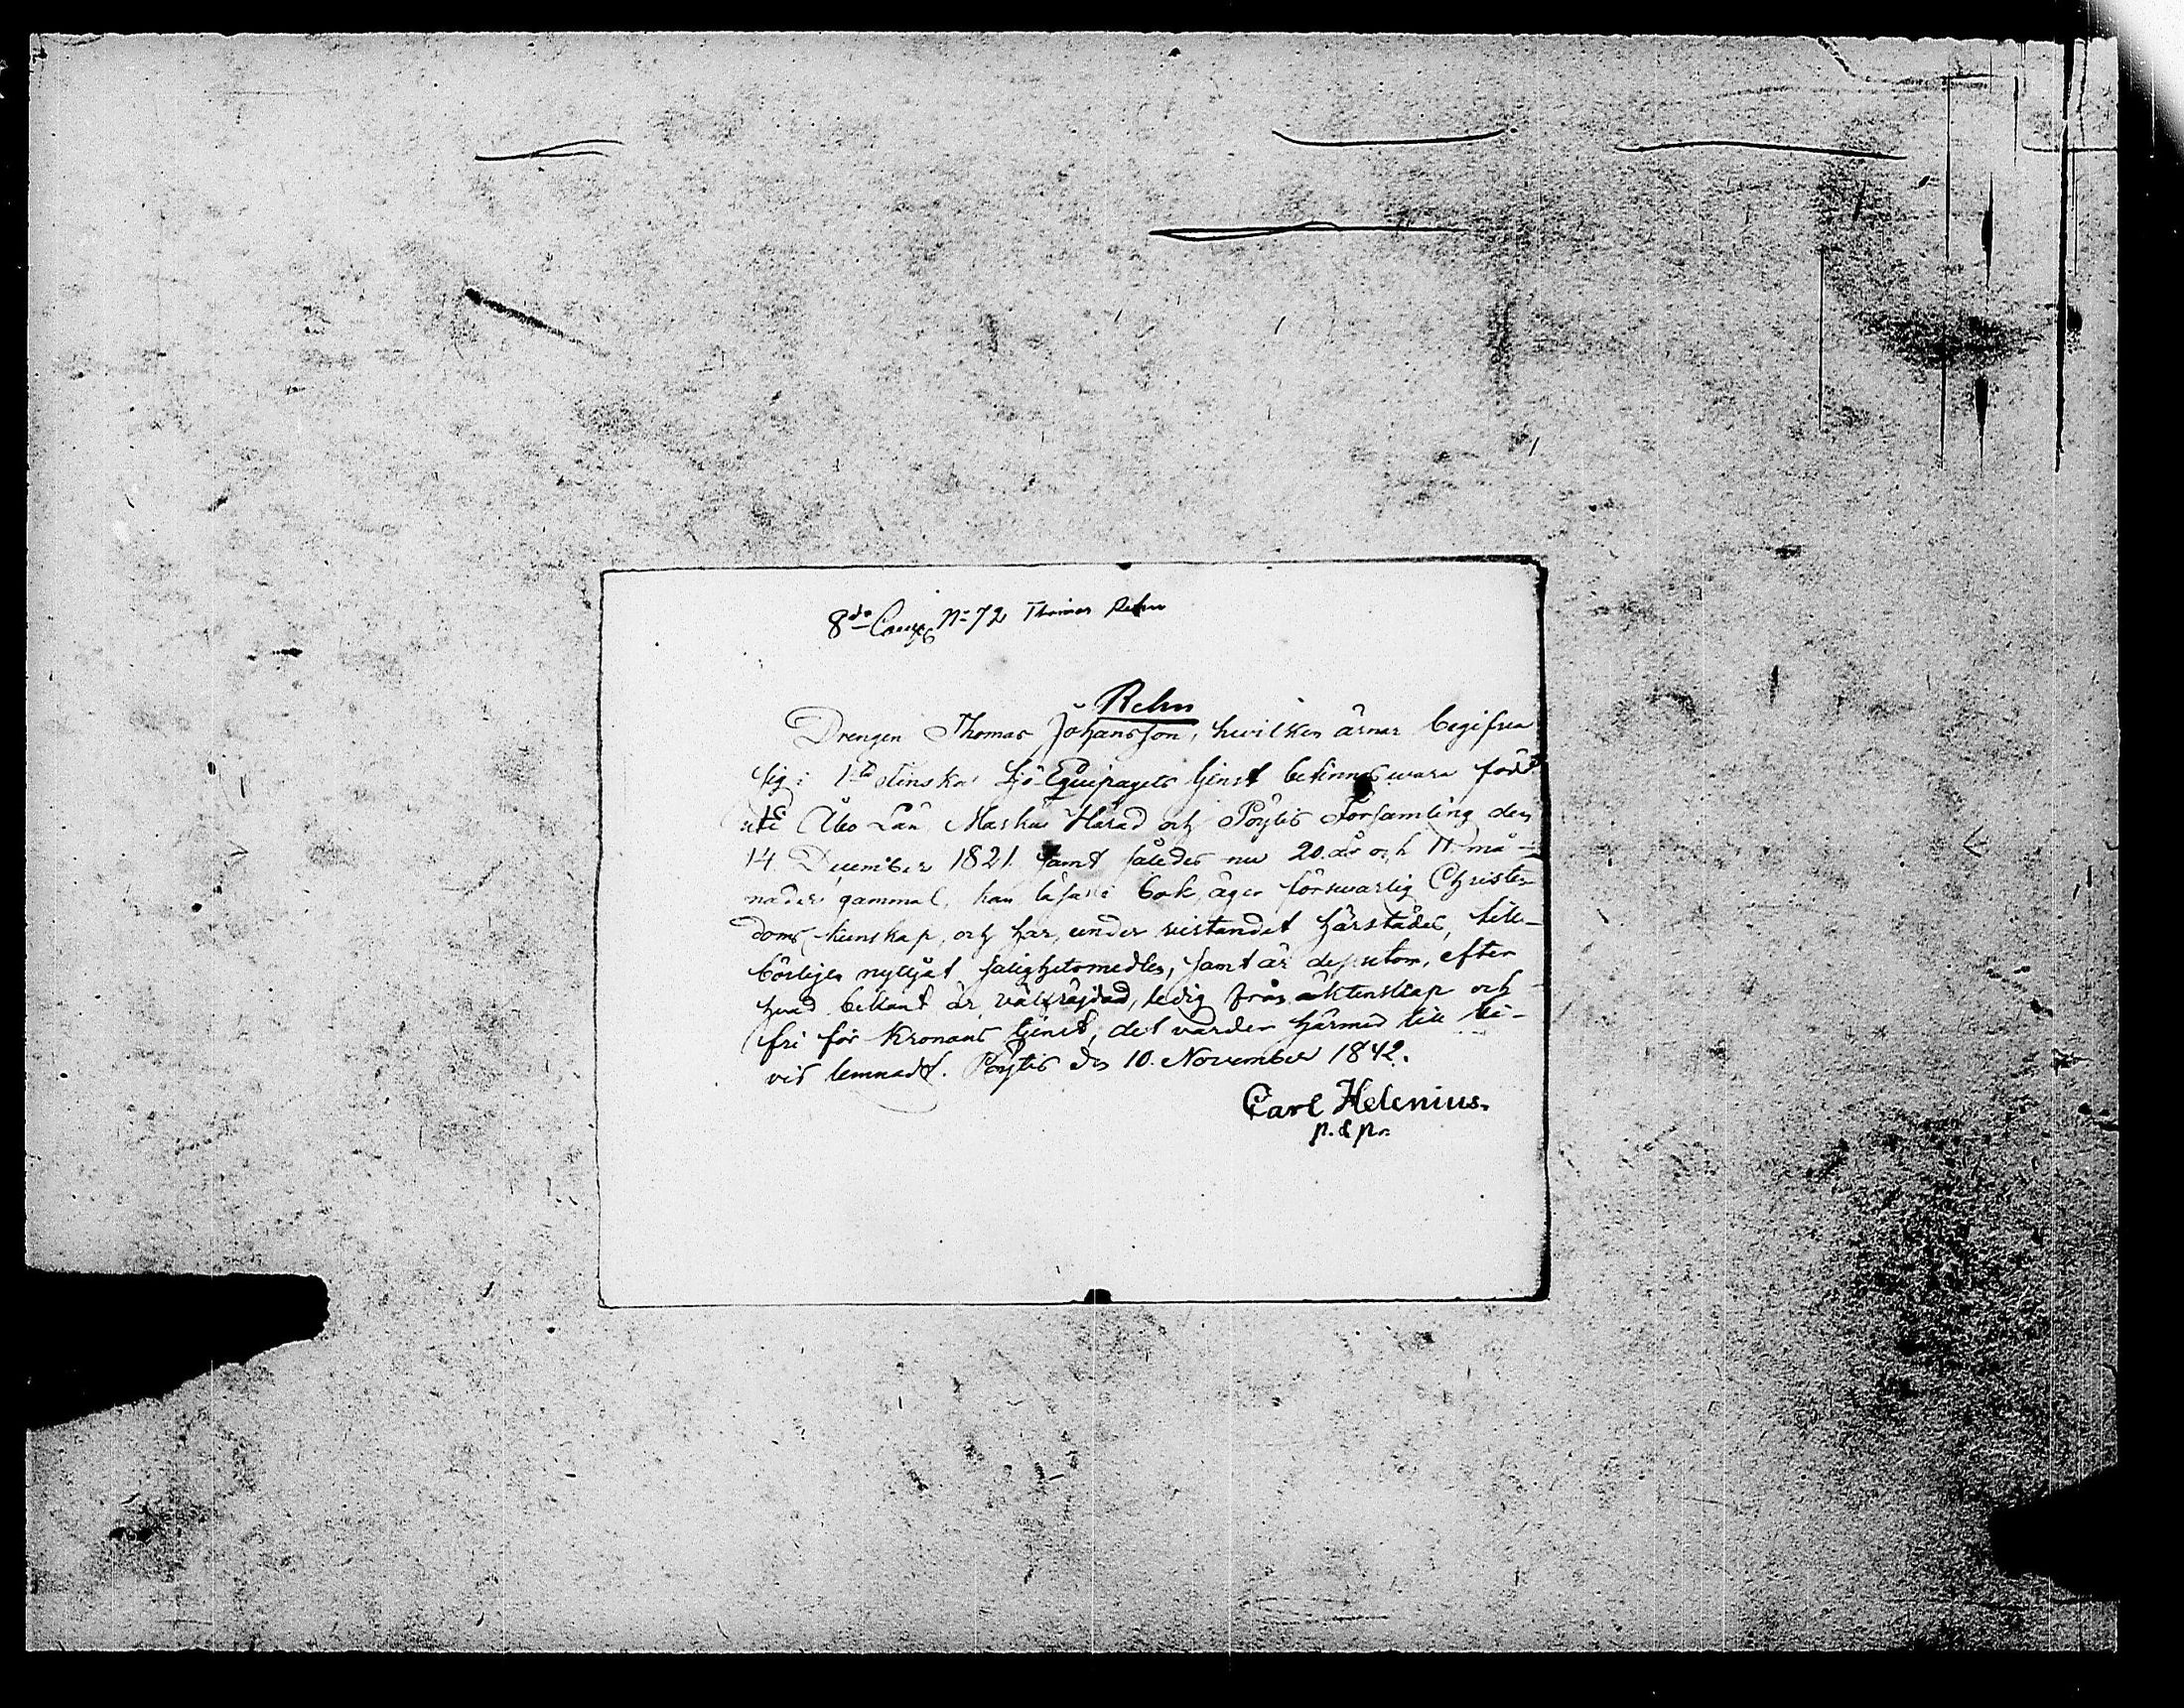 8de Comp. No 72 Thomas Rehn
Rehn
Drengen Thomas Johansson, hwilken ärnar begifva
sig i 1sta Finska Sjö-Equipagets tjenst bekännes wara född
uti Åbo Län, Masku Härad och Pöytis Församling den
14 December 1821. samt således nu 20 år och 11 må-
nader gammal, kan läsa i bok, äger förswarlig Christen-
doms kunskap, och har, under vistandet härstädes, till-
börligen nyttjat salighetsmedlen, samt är dessutom, efter
hvad bekant är, välfräjdad, ledig från äktenskap och
fri för Kronans tjenst, det varder härmed till be-
vis lemnadt. Pöytis den 10. November 1842.
Carl Helenius.
p. & p.